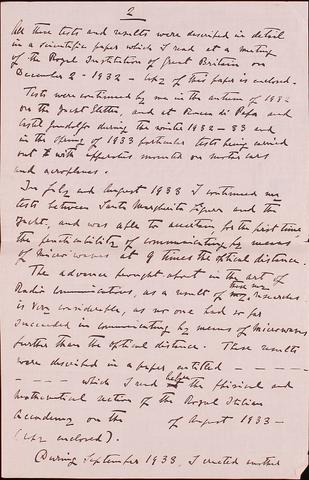 2
All these tests and results were described in detail
in a scientific paper which I read at a meeting
of the Royal Institution of Great Britain on
December 2 - 1932 - copy of this paper is enclosed.
Tests were continued by me in the autumn of 1932
on the Yacht Elettra, and at Rocca di Papa and
Castel Gandolfo during the winter 1932 - 33 and
in the spring of 1933 particular tests being carried
out with apparatus mounted on motor cars
and aeroplanes.
In July and August 1933 I continued my
tests between Santa Margherita Ligure and the
Yacht, and was able to ascertain, for the first time,
the practicability of communicating by means
of microwaves at 9 times the optical distance.
The advance brought about in the art of
Radio Communications, as a result of these my researches
is very considerable, as no one had so far
succeeded in communicating by means of microwaves
further than the optical distance. These results
were described in a paper, entitled - - - -
- - - - - which I read before the phisical and
mathematical section of the Royal Italian
Academy on the of August 1933 -
(copy enclosed).
During September 1933, I erected another